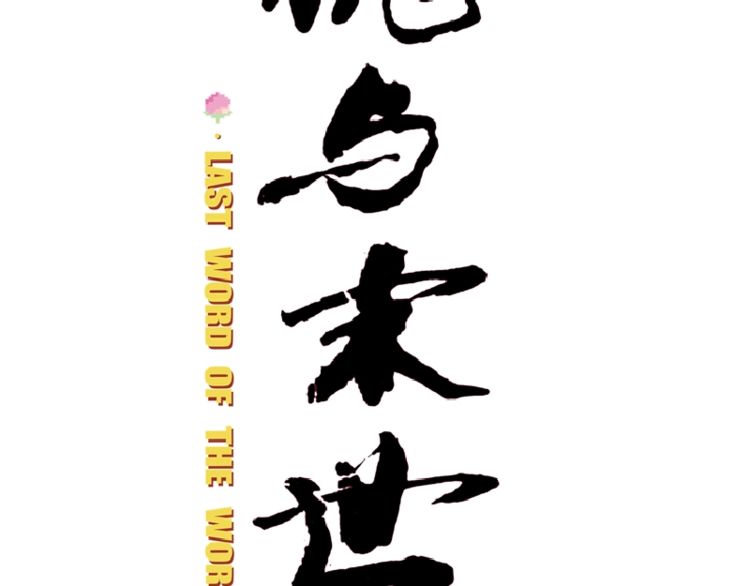 与末世
LAST WORD OF THE WOR